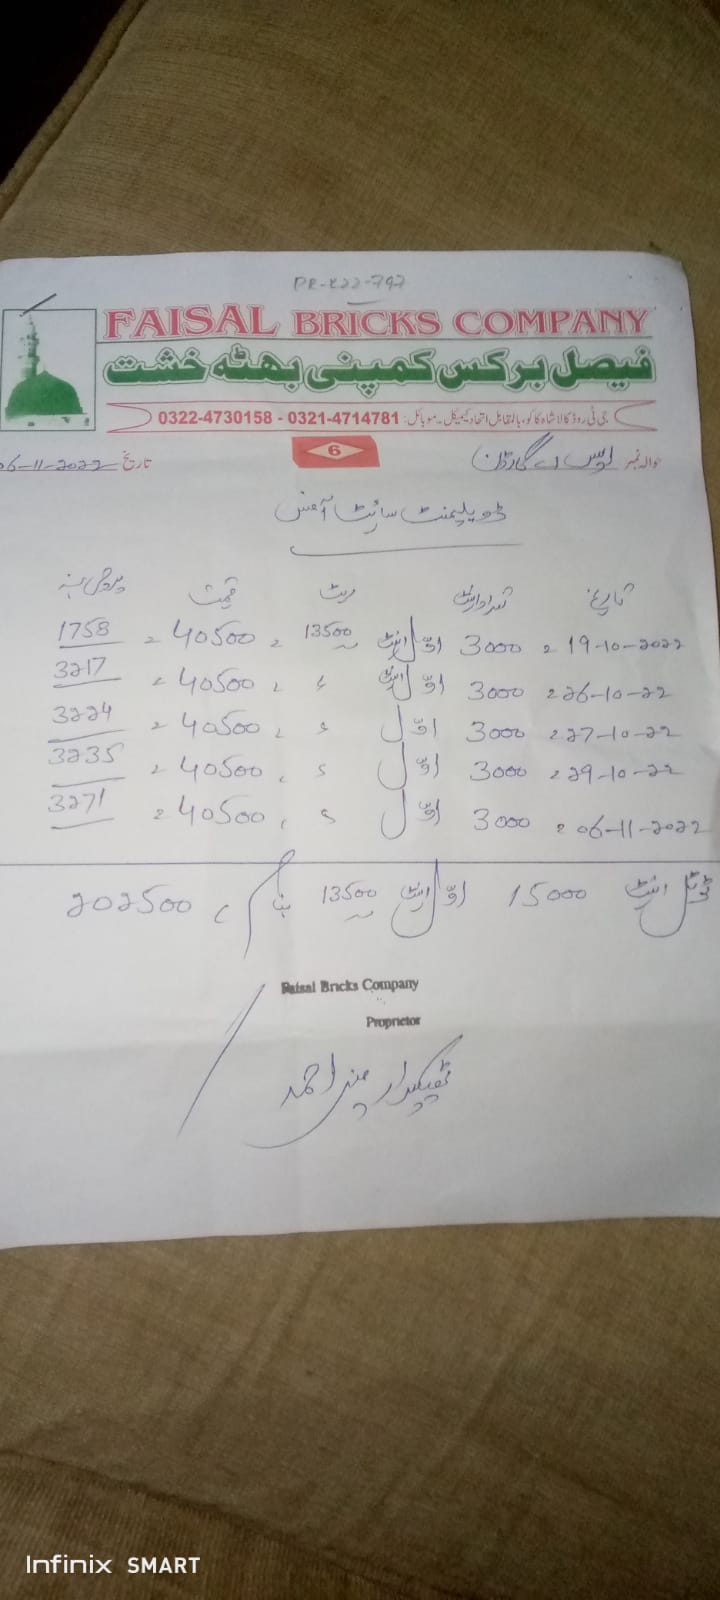 PR-K22-797
FAISAL BRICKS COMPANY
فیصل برکس کمپنی بھٹہ خشت
جی ٹی روڈ کالا شاہ کاکو، بالمقابل اتحاد کیمیکل۔ موبائل: 0321-4714781 - 0322-4730158
6
حوالہ نمبر تاریخ 06-11-2022
ڈویلپمنٹ سائیٹ آفس
تاریخ تعداد اینٹ ریٹ قیمت
19-10-2022 3000 اوّل اینٹ 13500 40500 1758
26-10-22 3000 اوّل اینٹ 40500 3217
27-10-22 3000 اوّل 40500 3224
29-10-22 3000 اوّل 40500 3235
06-11-2022 3000 اوّل 40500 3271
ٹوٹل اینٹ 15000 اوّل اینٹ 13500 202500
Faisal Bricks Company
Proprietor
ٹھیکیدار احمد
Infinix SMART